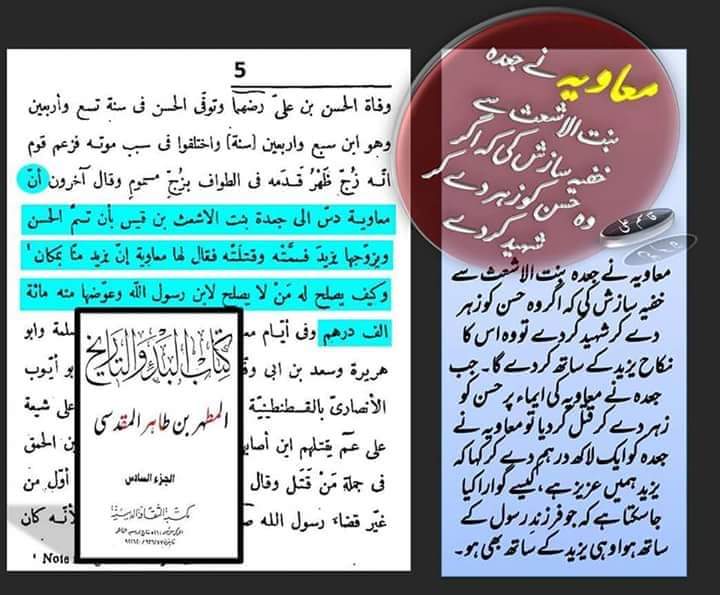 5
وفاة الحسن بن علىّ رضهما وتوفّى الحسن فى سنة تسع واربعين
وهو ابن سبع واربعين [سنة] واختلفوا فى سبب موته فزعم قوم
انّه زُجّ ظَهْرُ قدمه فى الطواف بزُجّ مسموم وقال آخرون أنّ
معاوية دسّ الى جعدة بنت الاشعث بن قيس بأن تسمّ الحسن
ويزوّجها يزيدَ فسمَّتْه وقتلَتْه فقال لها معاوية إنّ يزيد منّا بمكان '
وكيف يصلح له مَنْ لا يصلح لابن رسول الله وعوّضها منه مائة
الف درهم وفى أيّام
سلمة وابو
هريرة وسعد بن ابى
أيّوب
الأنصارىّ بالقسطنطينيّة
على شيعة
علىّ
يقتلهم ابن
بن الحمق
فى جملة مَنْ قتل وقال
أوّل من
غيّر قضاء رسول الله
لأنّه كان
' Note
كتاب البدء والتاريخ
المطهر بن طاهر المقدسى
الجزء السادس
مكتبة الثقافة الدينية
معاویہ نے جعدہ
بنت الاشعث سے
خفیہ سازش کی کہ اگر
وہ حسن کو زہر دے کر
شہید کر دے
معاویہ نے جعدہ بنت الاشعث سے
خفیہ سازش کی کہ اگر وہ حسن کو زہر
دے کر شہید کر دے تو وہ اس کا
نکاح یزید کے ساتھ کر دے گا۔ جب
جعدہ نے معاویہ کی ایماء پر حسن کو
زہر دے کر قتل کر دیا تو معاویہ نے
جعدہ کو ایک لاکھ درہم دے کر کہا کہ
یزید ہمیں عزیز ہے، کیسے گوارا کیا
جا سکتا ہے کہ جو فرزندِ رسول کے
ساتھ ہوا وہی یزید کے ساتھ بھی ہو۔